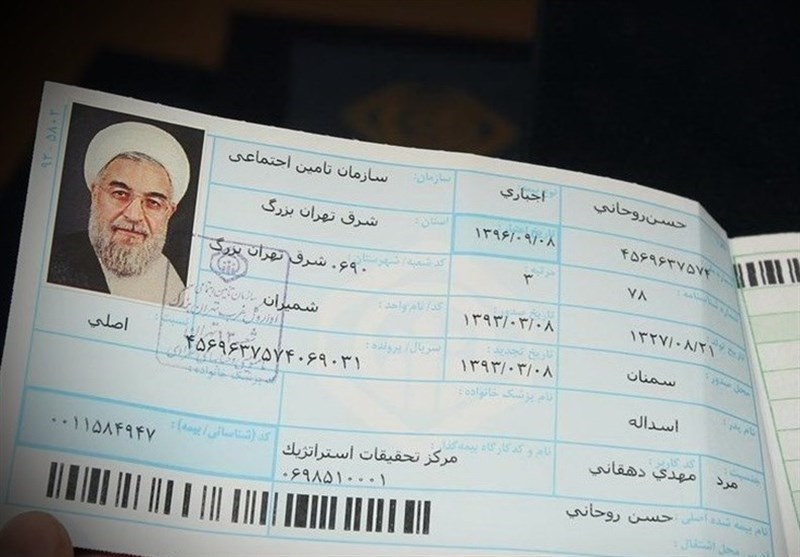 حسن روحاني
۴۵۶۹۶۳۷۵۷۴
۷۸
۱۳۲۷/۰۸/۲۱
محل صدور:
سمنان
نام پدر:
اسداله
جنسیت:
مرد
اجباري
۱۳۹۶/۰۹/۰۸
مرتبه:
۳
تاریخ صدور:
۱۳۹۳/۰۳/۰۸
تاریخ تجدید:
۱۳۹۳/۰۳/۰۸
نام پزشک خانواده:
کد کاربر:
مهدي دهقاني
سازمان:
سازمان تامین اجتماعی
استان:
شرق تهران بزرگ
کد شعبه/ شهرستان:
۰۶۹۰ شرق تهران بزرگ
کد/ نام واحد:
شمیران
سریال/ پرونده:
۴۵۶۹۶۳۷۵۷۴۰۶۹۰۳۱
اصلي
نام و کدکارگاه بیمه‌گذار:
مرکز تحقیقات استراتژیك
۰۶۹۸۵۱۰۰۰۱
کد (شناسائی/ بیمه):
۰۰۱۱۵۸۴۹۴۷
نام بیمه شده اصلی:
حسن روحاني